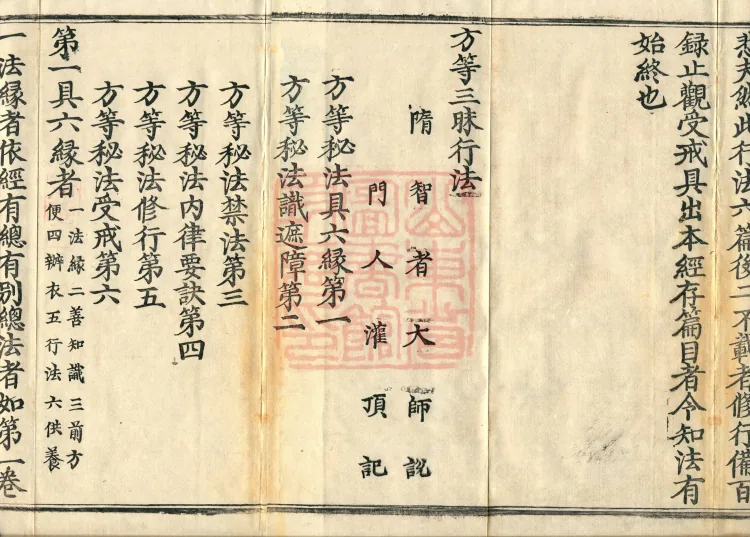 悲夫總此行法六篇後二不載者修行備百
録止觀受戒具出本經存篇目者令知法有
始終也
方等三昧行法
隋智者大師說
門人灌頂記
方等秘法具六緣第一
方等秘法識遮障第二
方等秘法禁法第三
方等秘法内律要訣第四
方等秘法修行第五
方等秘法受戒第六
第一具六緣者一法緣二善知識三前方
便四辦衣五行法六供養
一法緣者依經有總有别總法者如第一卷